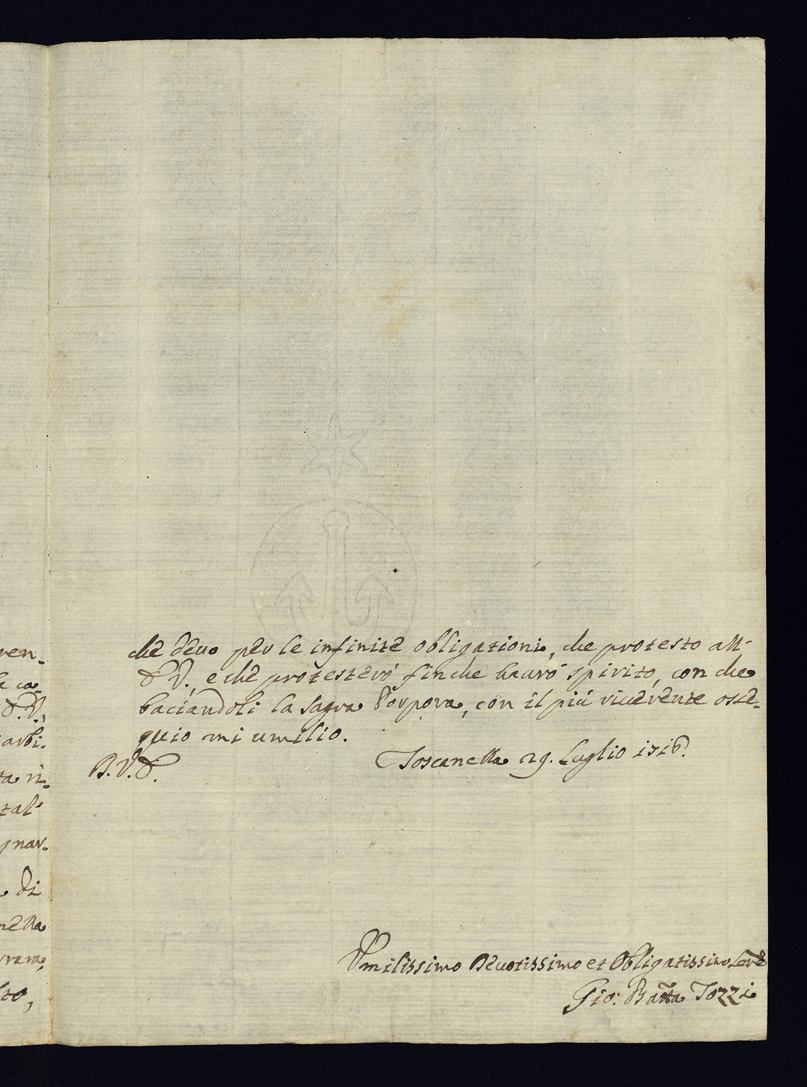 ven-
la ca-
&. V.,
arbi-
ta ri-
tal'
gnar-
di
nella
vrara,
lto,
che devo per le infinite obligationi, che protesto all'
&. V., e che protesterò finche haurò spirito, con che
baciandoli la Sagra Porpora, con il più riverente osse-
quio mi umilio.
B. V. &.
Toscanella 29. Luglio 1716.
Umilissimo Devotissimo et Obligatissimo Serv.e
Gio: Batta Tozzi